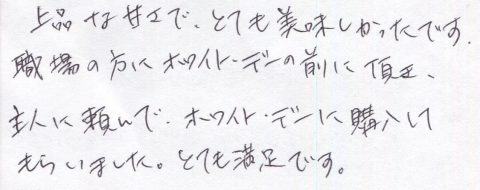 上品な甘さで、とても美味しかったです.
職場の方にホワイト・デーの前に頂き、
主人に頼んで、ホワイト・デーに購入して
もらいました。とても満足です。